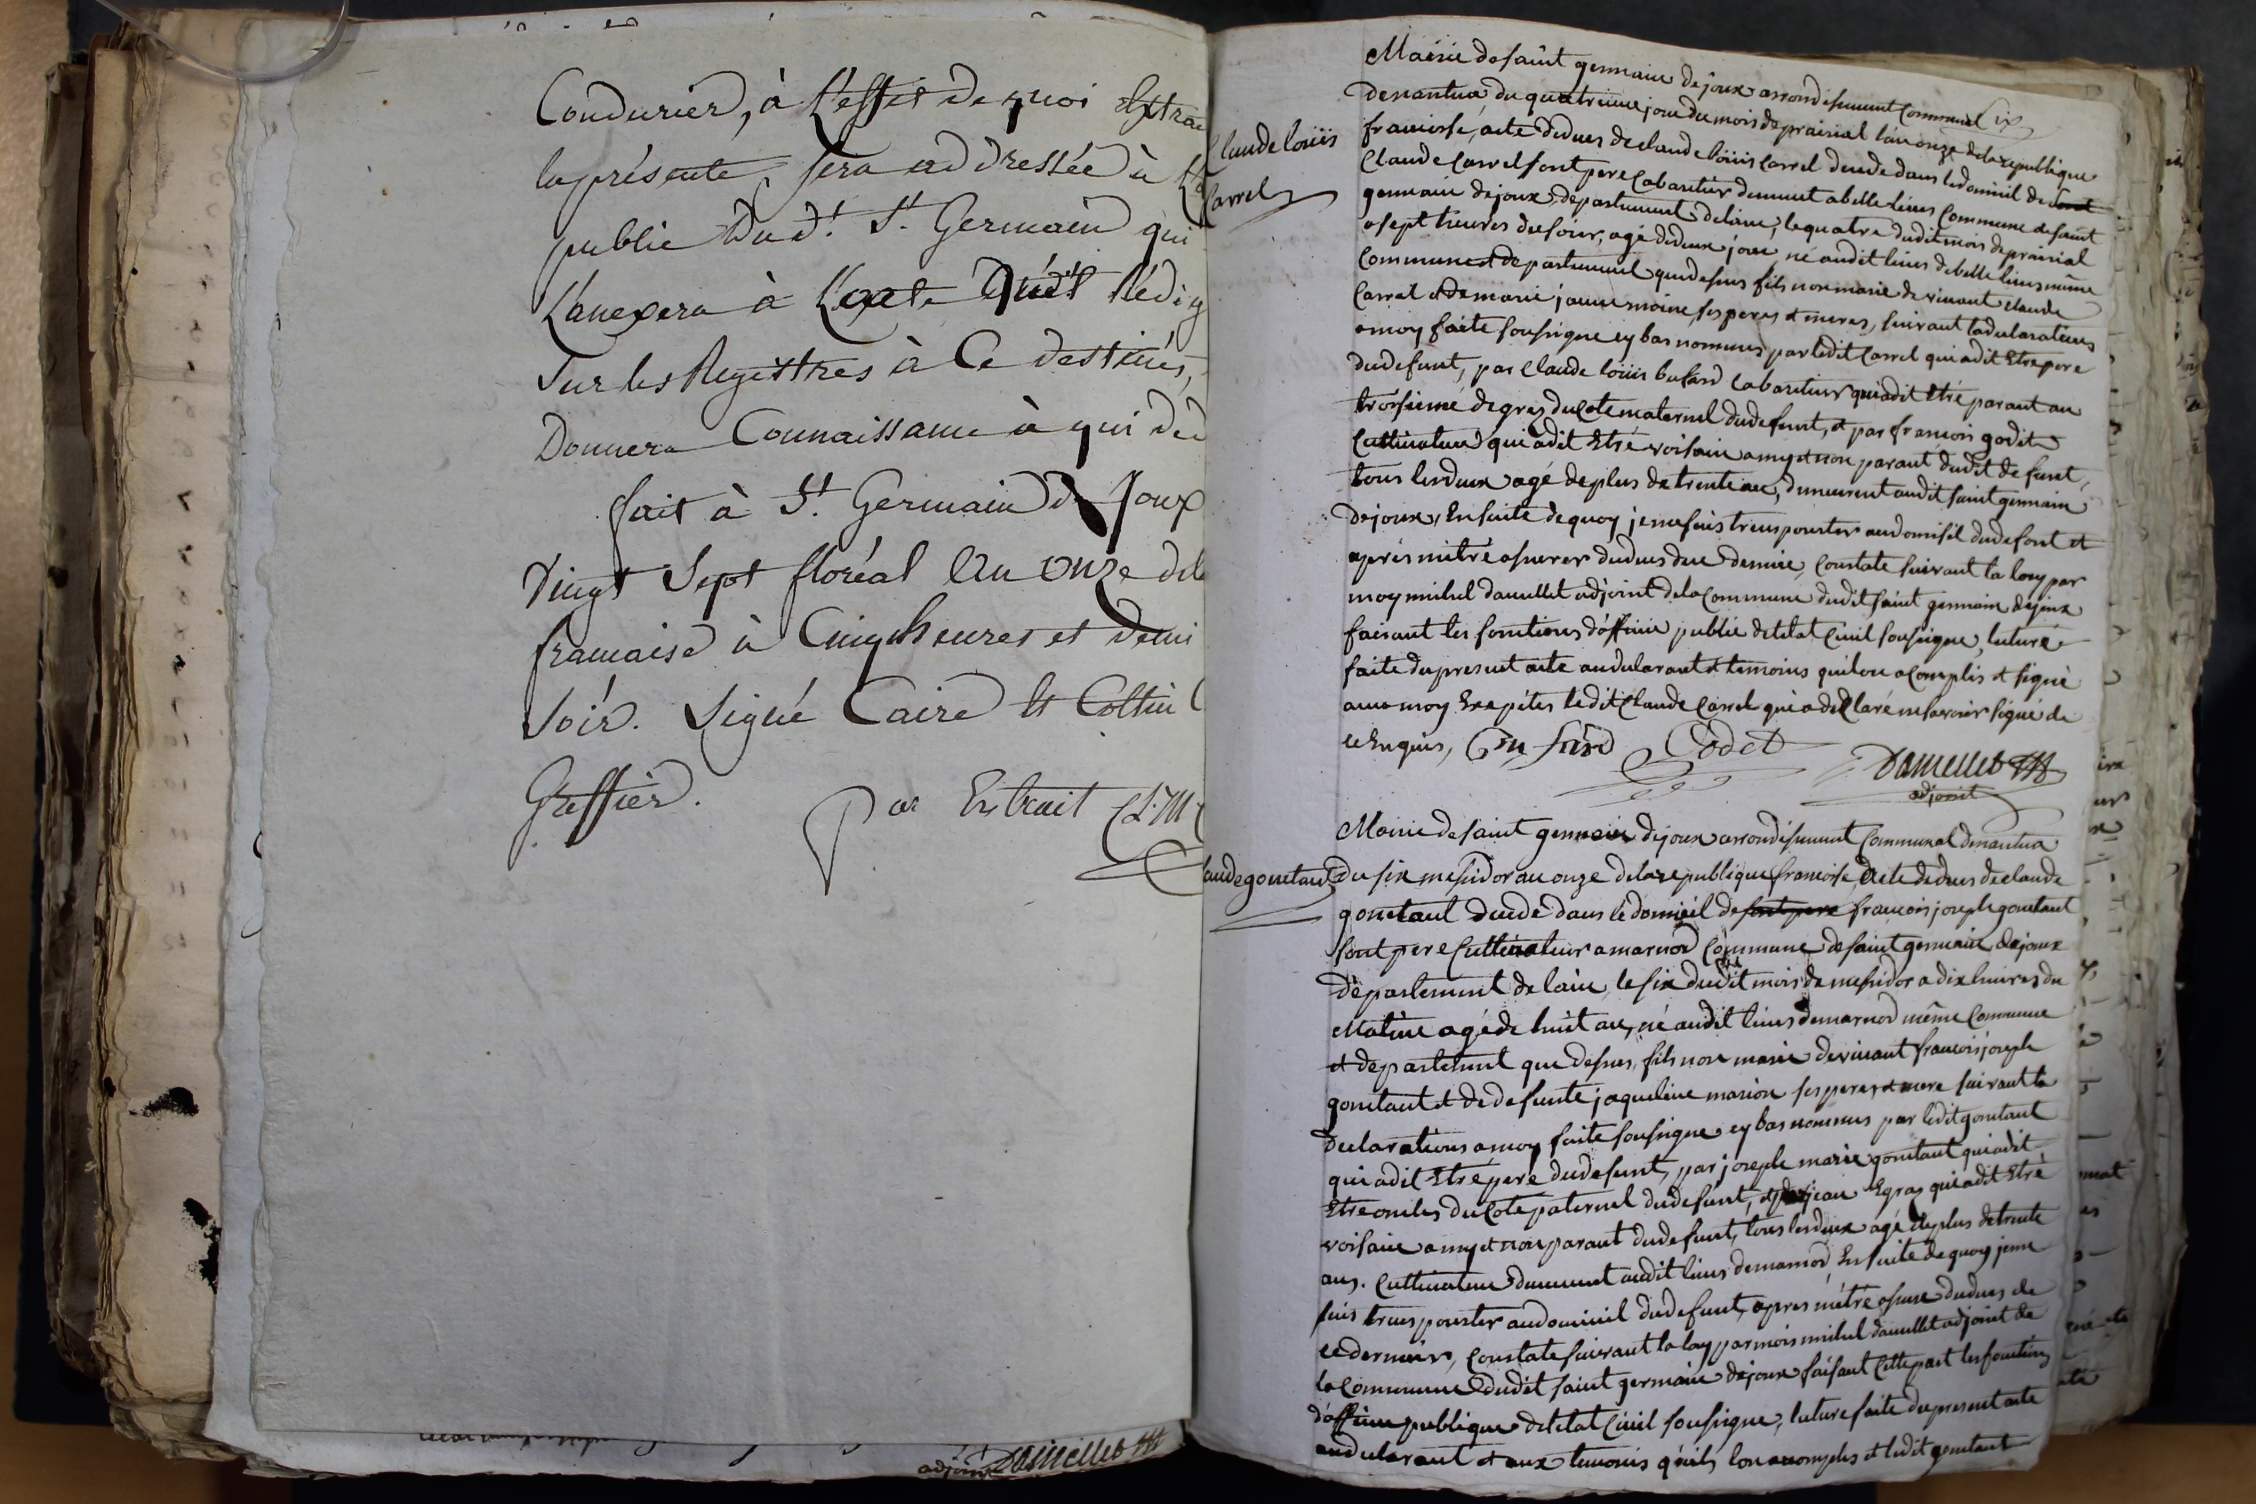 Condurier, à L'effet de quoi Extrai
la présente sera addressée à L'
public Du d.t S.t Germain qui
L'anexera à L'acte rédig
Sur les Registres à Ce destinés,
Donnera Connaissance à qui de
fait à S.t Germain de Joux
Vingt Sept floréal L'an Onze de la
française à Cinq heures et demi
Soir. Signé Caire et Coltin
Greffier.
Par Extrait
adjoint Daniellet
Claude loüis
Carrel
Mairie de saint germain de joux arrondissement Communal
denantua du quatrieme jour du mois de prairial l'an onze de la republique
francoise, acte dedeces de claude loüis Carrel decede dans le domicil de
Claude Carrel sont pere Cabaretier demeurt a belle lieus Commune de saint
germain de joux, departement de lain, le quatre dudit mois de prairial
a sept heures du soir, agé de deux jour né audit lieus de belle lieus même
Commune et departement que desus fils non marie de vivant claude
Carrel et de marie janne moine, ses peres et meres, suivant la declarations
a moy faite sousigne ey bas nommes par ledit Carrel qui a dit Etre pere
dudefunt, par Claude loüis bufard Cabaretier qui a dit Etre parant au
troisieme degres du Cote maternel dudefunt, et par francois godet
Cultivateur qui a dit Etré voisain amy et non parant dudit defunt,
tous lesdeux agé de plus de trente an, demeurent audit saint germain
de joux, Ensuite de quoy je me suis transpourter audomisil dudefont et
après métré assurer dudeces duce dernier, Constate suivant la loy par
moy michel daniellet adjoint dela Commune dudit saint germain dejoux
faisant les fonctions d'officie publie deletat Civil sousigne, lecture
faite du present acte au declarant et temoins qu'il on acomplis et signé
avec moy Exepétes ledit Claude Carrel qui a declaré ne savoir signé de
ce Enquis, Bufard Godet Daniellet
adjoint
Claude goncetant
Mairie de saint germain dejoux arrondissement Communal denantua
du six mesidor an onze dela republique francoise, Acte dedeces declaude
goncetant decede dans le domicil de sont pere francois joseph goncetant
sont pere Cultivateur a marnod Commune de saint germain dejoux
departement de lain, le six dudit mois de mesidor a dix heures du
Matine agé de huit an, né audit lieus demarnod même Commune
et departement que desus, fils non marie devivant francois joseph
goncetant et de defunte jaqueline marion ses peres et mere suivant la
Declarations a moy faite sousigne ey bas nommes par ledit goncetant
qui a dit Etre pere dudefunt, par joseph marie goncetant qui a dit
Etre oncles du Cote paternel dudefunt, et par jean Egraz qui a dit Etre
voisaine amy et non parant dudefunt, tous lesdeux agé deplus de trente
ans. Cultivateur demeurent audit lieus demarnod Ensuite de quoy jeme
suis transpourter audomicil dudefunt, apres métre assure dudeces de
cedernier, Constate suivant la loy par mois michel daniellet adjoint de
la Commune dudit saint germain dejoux faisant Cettepart les fonctions
d'officie publique deletat Civil sousigne, lecture faite dupresent acte
audeclarant et aux temoins qu'ils lon acomplis et ledit goncetant